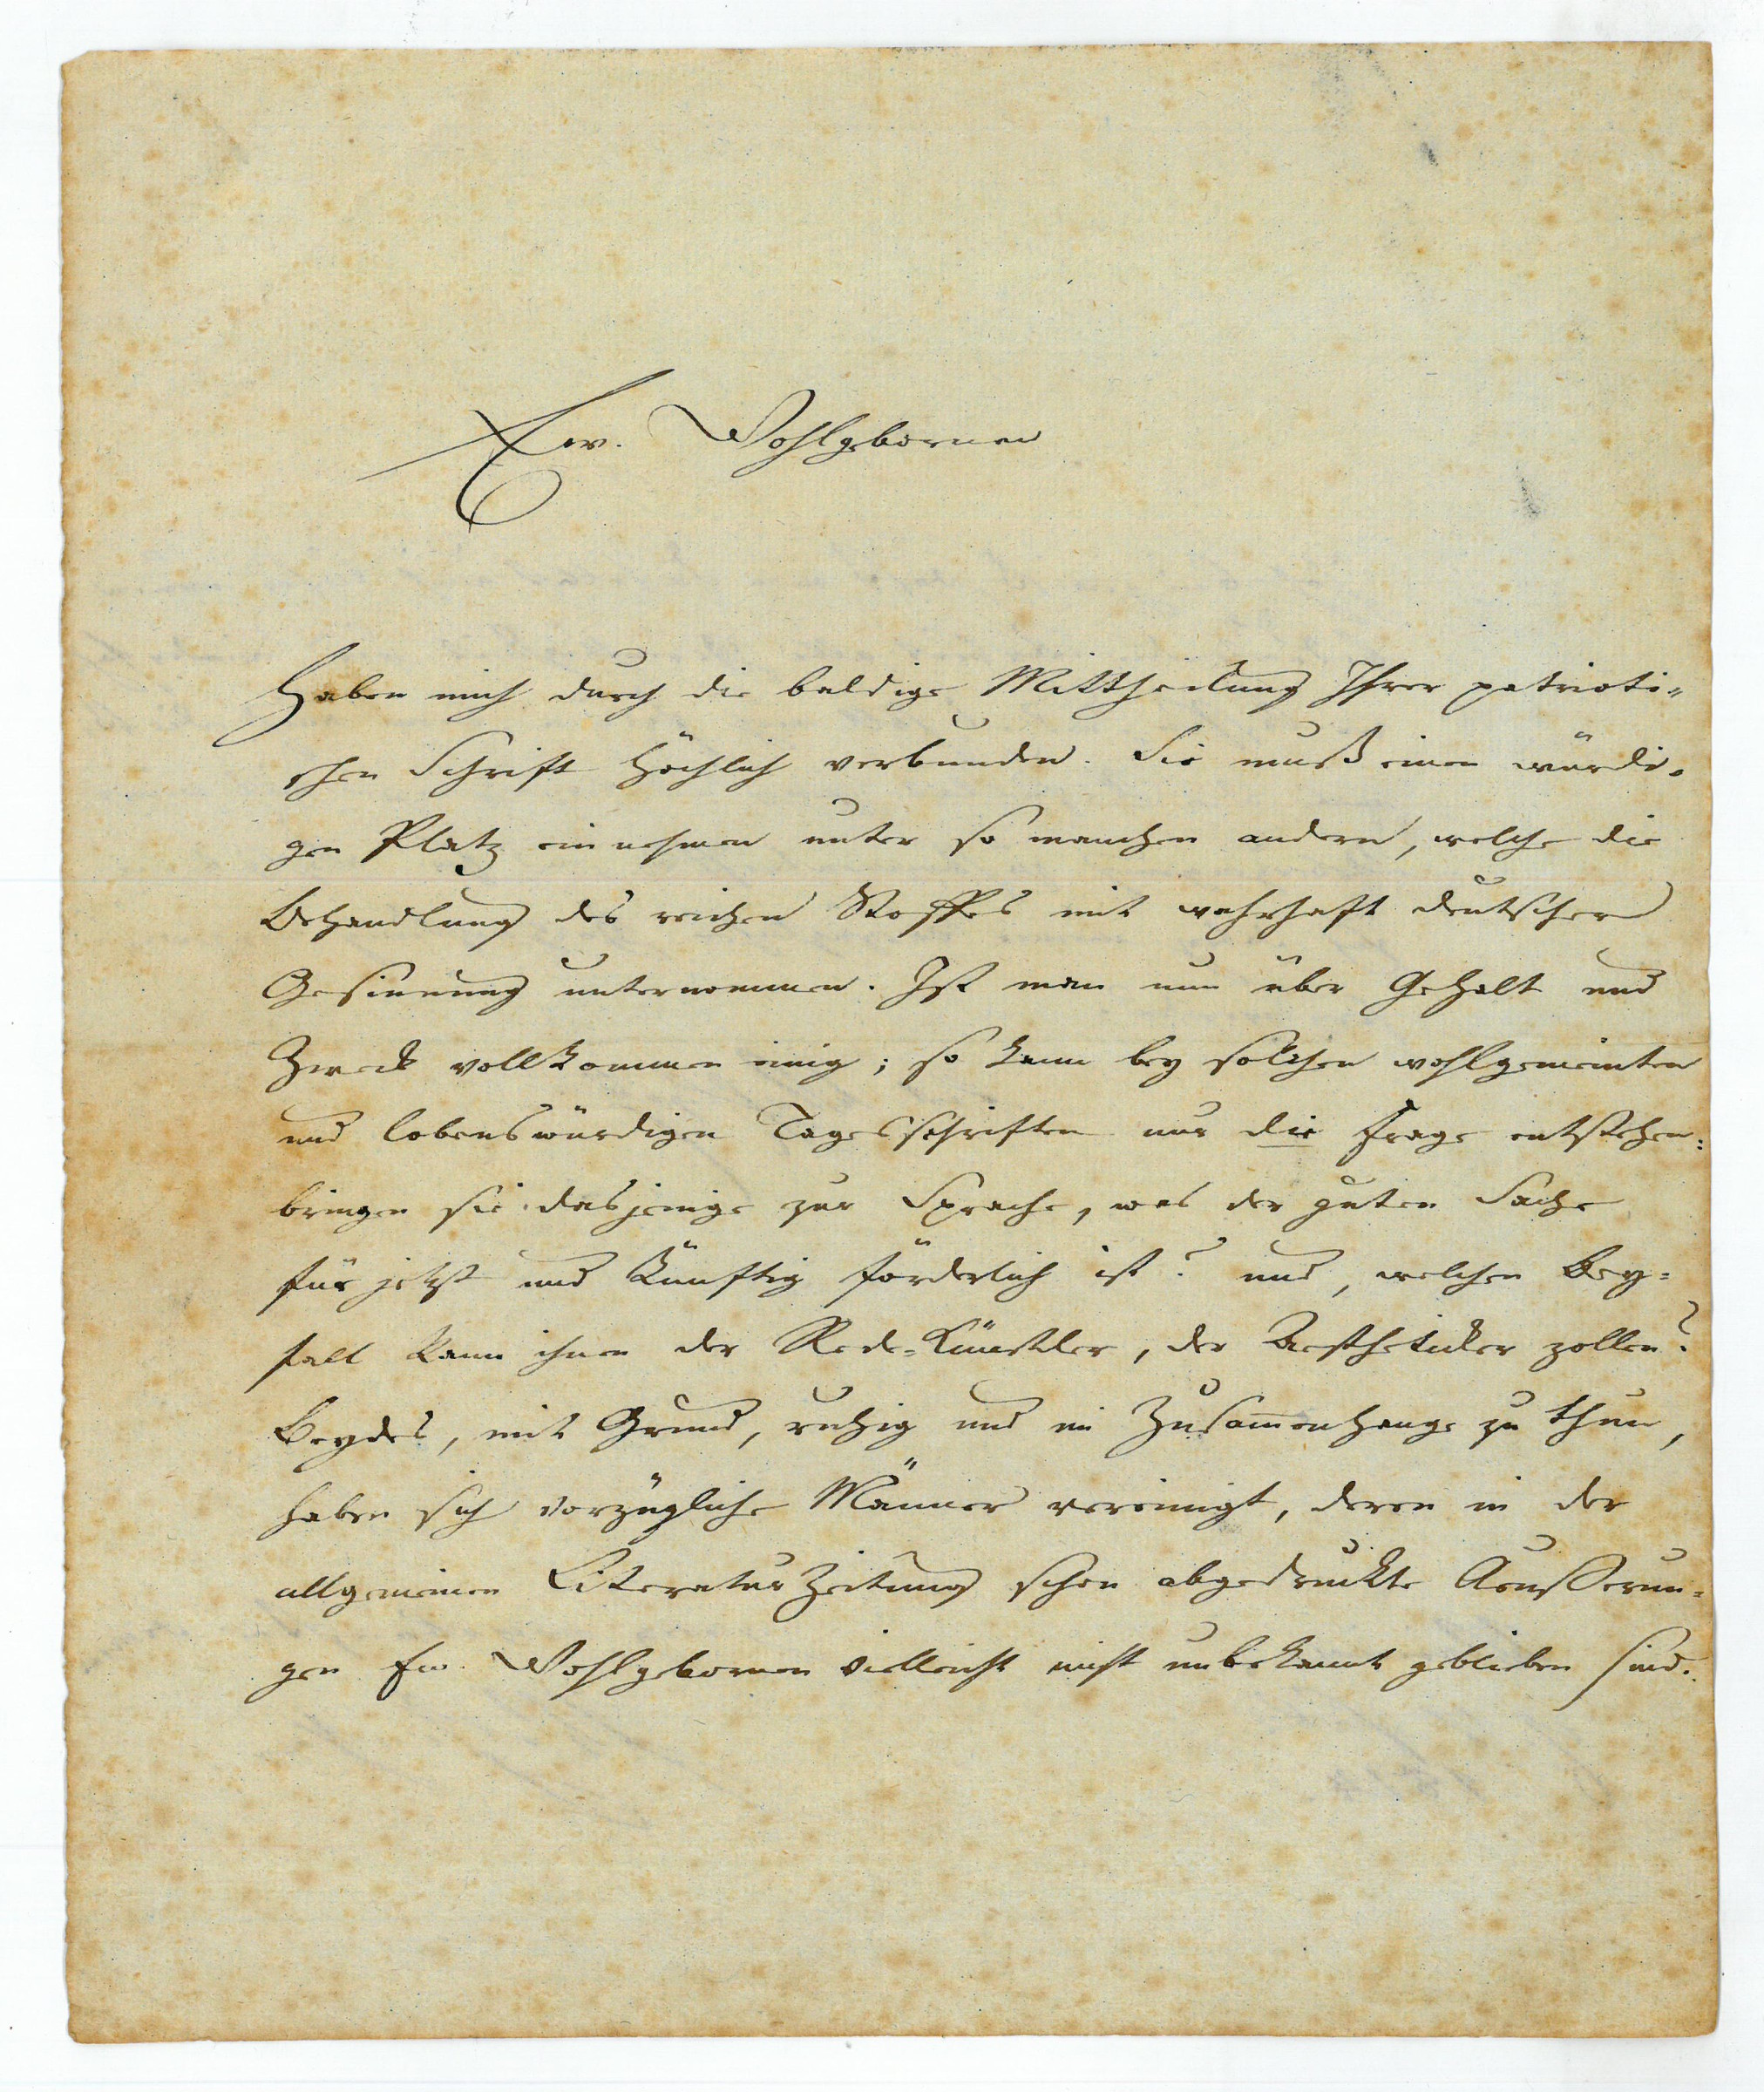 Ew. Wohlgebornen
Haben mich durch die baldige Mittheilung Ihrer patrioti-
schen Schrift höchlich verbunden. Sie muß einen würdi-
gen Platz einnehmen unter so manchen andern, welche die
Behandlung des reichen Stoffes mit wahrhaft deutscher
Gesinnung unternommen. Ist man nun über Gehalt und
Zweck vollkommen einig; so kann bey solchen wohlgemeinten
und lobenswürdigen Tagesschriften nur die Frage entstehen:
bringen sie dasjenige zur Sprache, was der guten Sache
für jetzt und künftig förderlich ist? und, welchen Bey-
fall kann ihnen der Rede-Künstler, der Aesthetiker zollen?
Beydes, mit Grund, ruhig und im Zusam̅enhange zu thun,
haben sich vorzügliche Männer vereinigt, deren in der
allgemeinen Literatur Zeitung schon abgedruckte Aeußerun-
gen Ew. Wohlgebornen vielleicht nicht unbekannt geblieben sind.